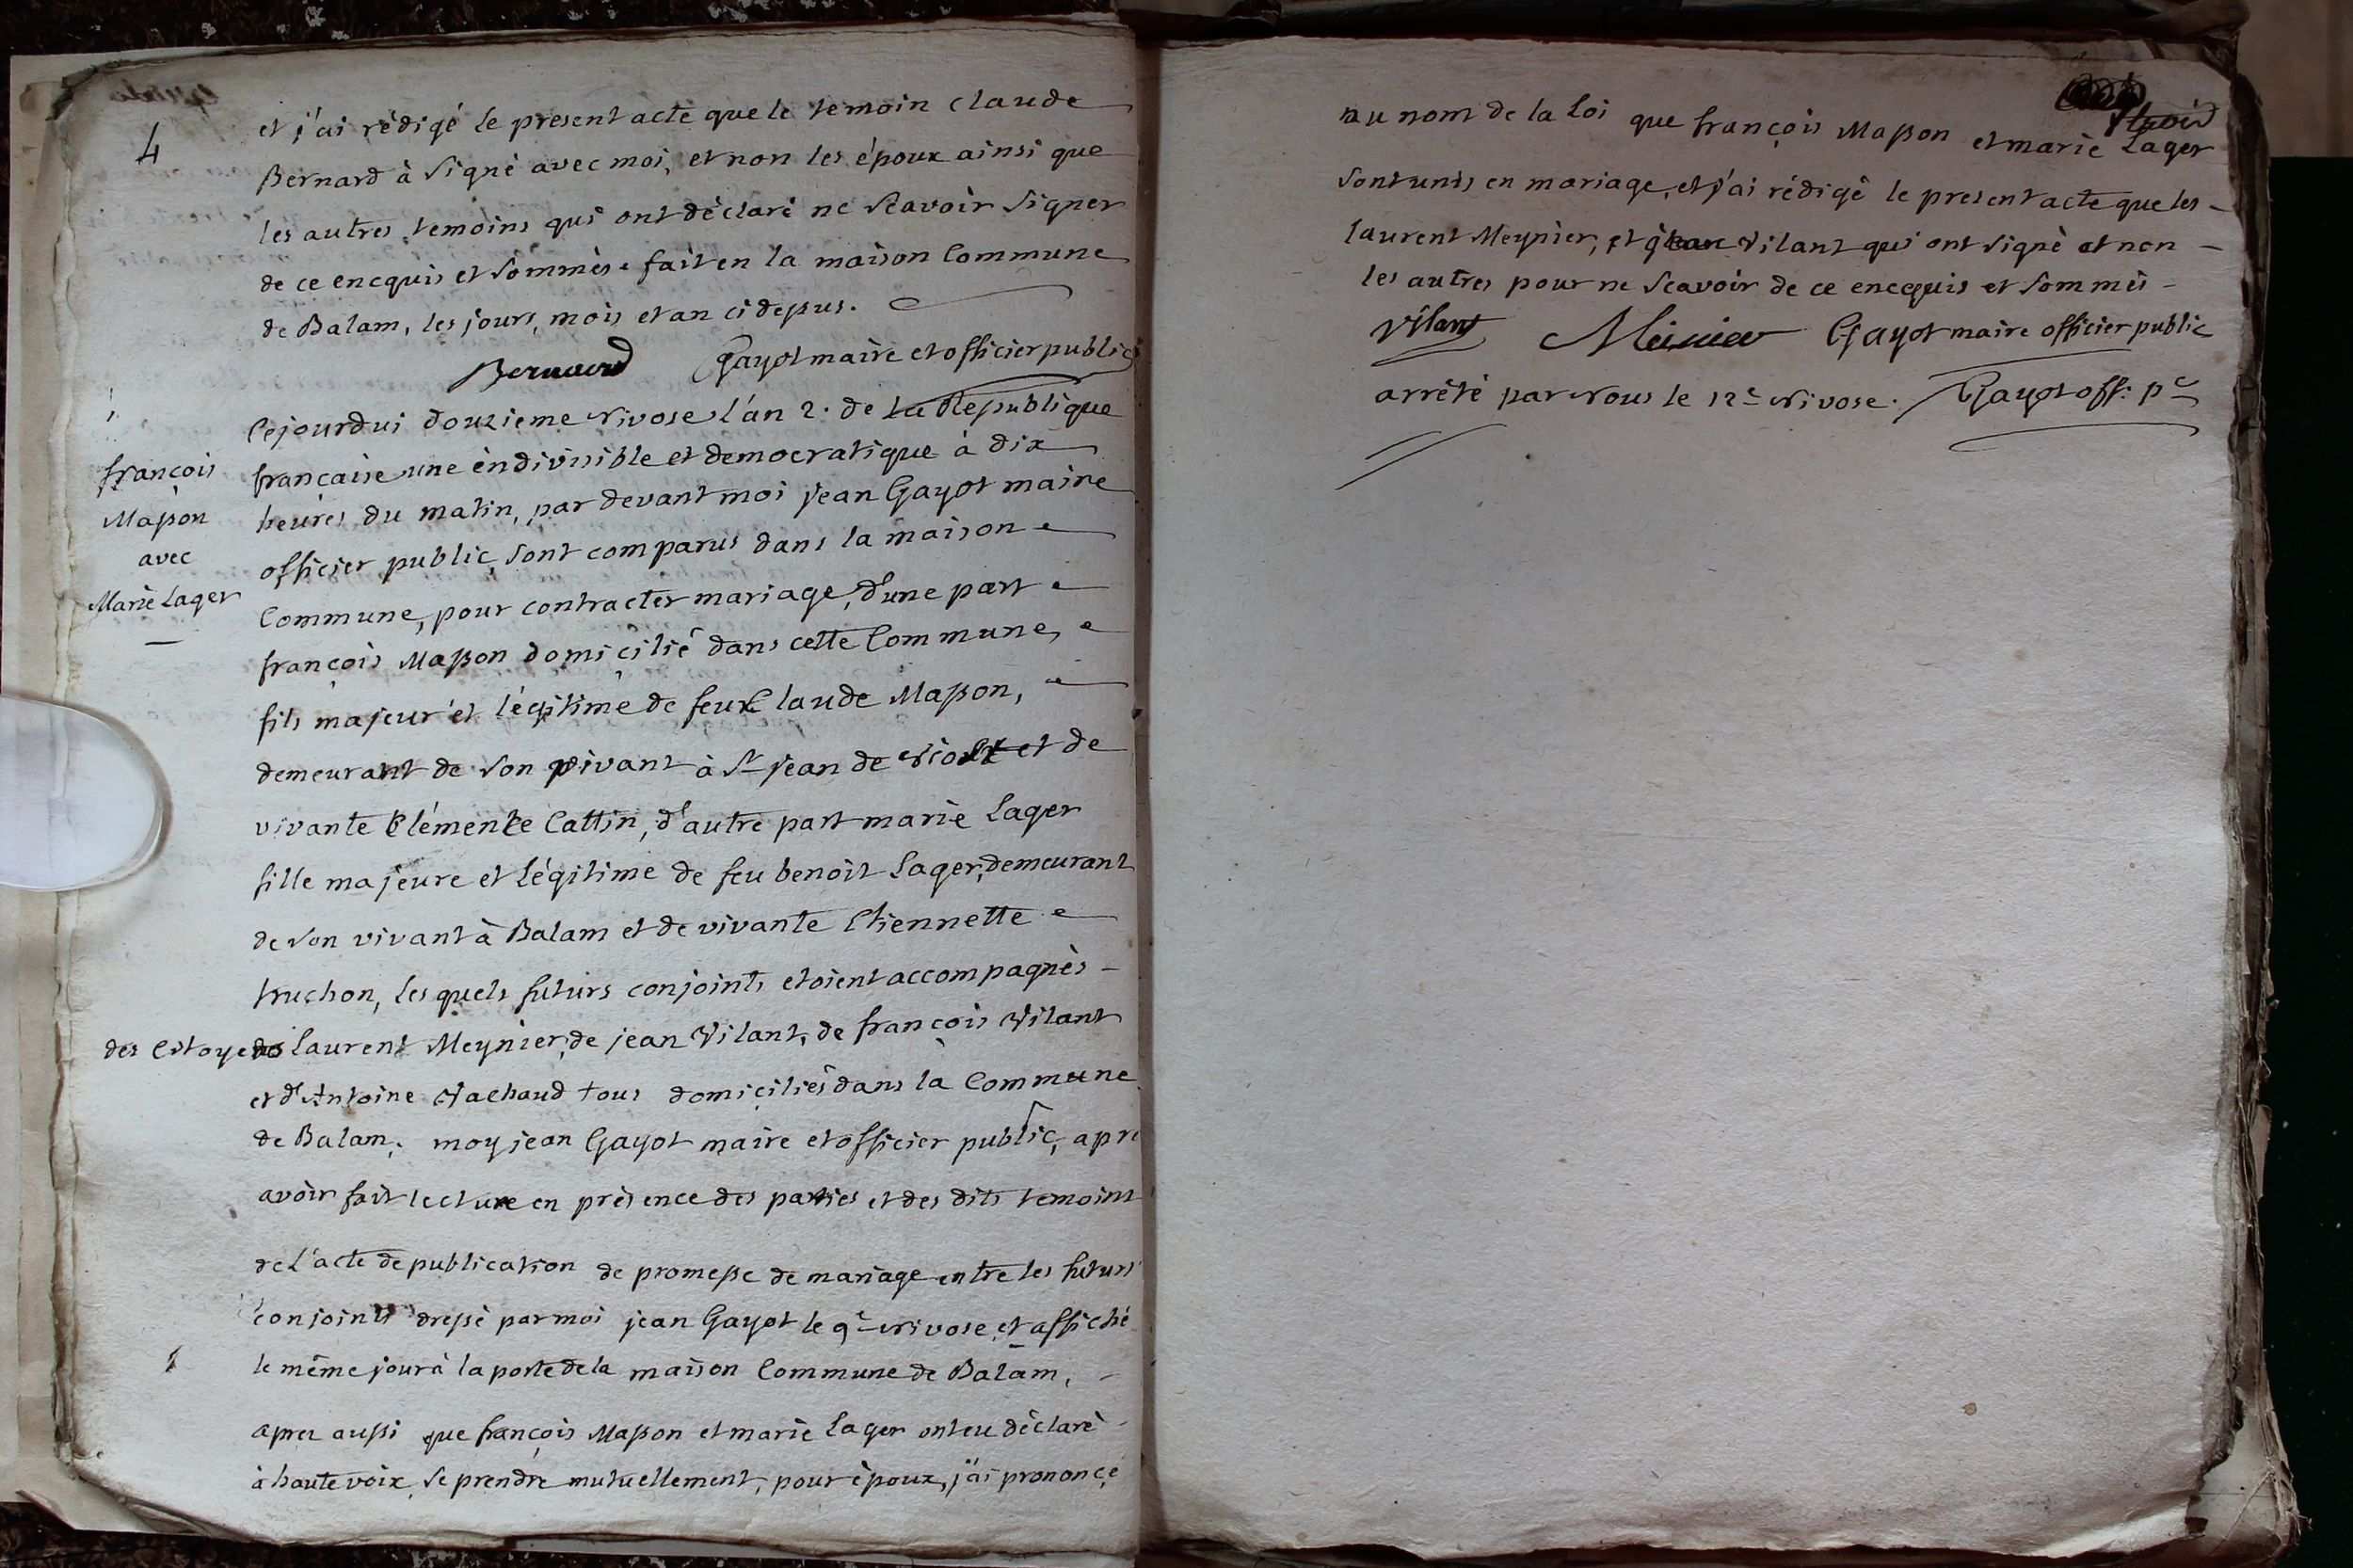 4
et j'ai rédigé le present acte que le temoin claude
Bernard à signé avec moi, et non les époux ainsi que
les autres temoins qui ont déclaré ne scavoir signer
de ce encquis et sommés. fait en la maison Commune
de Balam, les jours, mois et an ci depus.
Bernard Gayot maire et officier public
françois
Masson
avec
Marie Lager
Cejourdui douzieme Nivose l'an 2. de la Republique
francaise une indivisible et democratique à dix
heures du matin, par devant moi jean Gayot maire
officier public, sont comparus dans la maison
Commune, pour contracter mariage, d'une part
françois Masson domicilié dans cette Commune,
fils majeur et légitime de feu Claude Masson,
demeurant de son vivant à St jean de et de
vivante Clémence Cattin, d'autre part marie Lager
fille majeure et légitime de feu benoit Lager, demeurant
de son vivant à Balam et de vivante Etiennette
truchon, les quels futurs conjoints etoient accompagnés
des citoyens laurent Meynier, de jean Vilant, de françois Vilant
et d'Antoine tous domiciliés dans la Commune
de Balam. moy jean Gayot maire et officier public, apre
avoir fait lecture en présence des parties et des dits temoins
de l'acte de publication de promesse de mariage entre les futurs
conjoints dressé par moi jean Gayot le 9e Nivose, et affiché
le même jour à la porte de la maison Commune de Balam,
apres aussi que françois Masson et marie Lager ont eu déclaré
à haute voix se prendre mutuellement, pour époux, j'ai prononcé
au nom de la Loi que françois Masson et marie Lager
sont unis en mariage, et j'ai rédigé le present acte que les
laurent Meynier, et jean Vilant qui ont signé et non
les autres pour ne scavoir de ce encequis et sommés
Vilant Meinier Gayot maire officier public
arrêté par Nous le 12e Nivose. Gayot off. pc